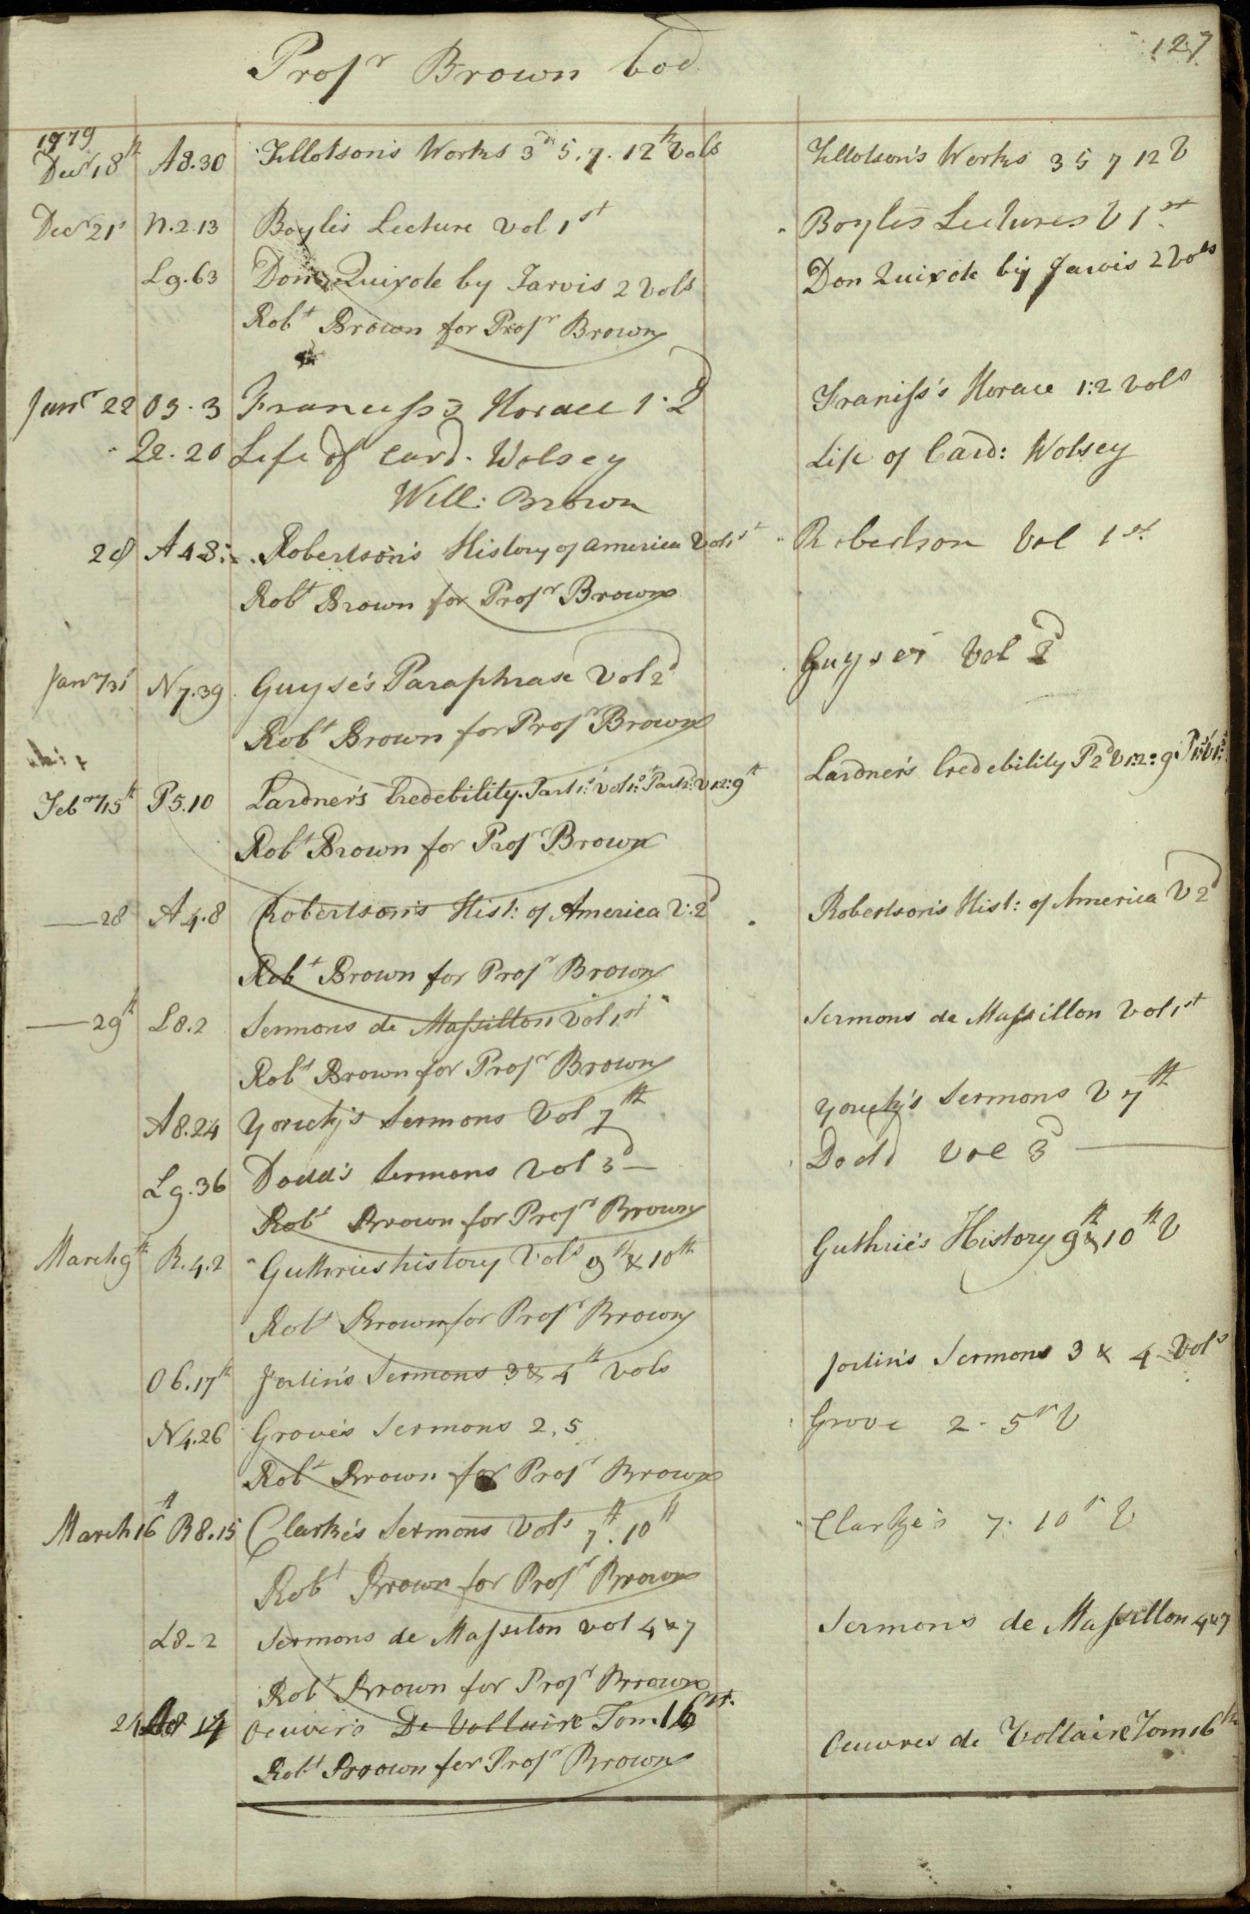 127
Profr Brown
1779
Decr 18th A8.30 Tillotson's Works 3d 5. 7. 12th Vols Tillotson's Works 3 5 7 12 V
Decr 21st N.2.13 Boyle's Lecture Vol 1st Boyle's Lectures V 1st
L9.63 Don Quixote by Jarvis 2 Vols Don Quixote by Jarvis 2 Vols
Robt Brown for Profr Brown
Janr 22 O3.3 Franciss's Horace 1.2d Franciss's Horace 1:2 vols
Q2.20 Life of Card. Wolsey Life of Card: Wolsey
Will: Brown
28 A4.8 Robertson's History of America Vol 1st Robertson Vol 1st
Robt Brown for Profr Brown
Janry 31st N7.39 Guyse's Paraphrase Vol 2d Guyses Vol 2d
Robt Brown for Profr Brown
Febry 15th P5.10 Lardner's Credebility. Part 1st Vol 1st Part 2d V 1:2:9th Lardner's Credebility P 2d V 1:2:9 P 1st V 1st
Robt Brown for Profr Brown
—28 A4.8 Robertson's Hist: of America V.2d Robertson's Hist: of America V 2d
Robt Brown for Profr Brown
—29th L8.2 Sermons de Massillon Vol 1st Sermons de Massillon Vol 1st
Robt Brown for Profr Brown
A8.24 Yorick's Sermons Vol 7th Yorick's Sermons V 7th
L9.36 Dodd's Sermons Vol 3d — Dodd Vol 3d
Robt Brown for Profr Brown
March 9th R.4.2 Guthries history Vols 9th & 10th Guthrie's History 9th & 10th V
Robt Brown for Profr Brown
O6.17th Jortin's Sermons 3 & 4th Vols Jortin's Sermons 3 & 4 Vols
N4.26 Grove's Sermons 2, 5 Grove 2. 5 V
Robt Brown for Profr Brown
March 16th B8.15 Clarke's Sermons Vols 7th. 10th Clarke's 7. 10 V
Robt Brown for Profr Brown
L8.2 Sermons de Massilon Vol 4 & 7 Sermons de Massillon 4 & 7
Robt Brown for Profr Brown
24 Oeuvers De Voltaire Tom. 16th Oeuvres de Voltaire Tom 16th
Robt Brown for Profr Brown